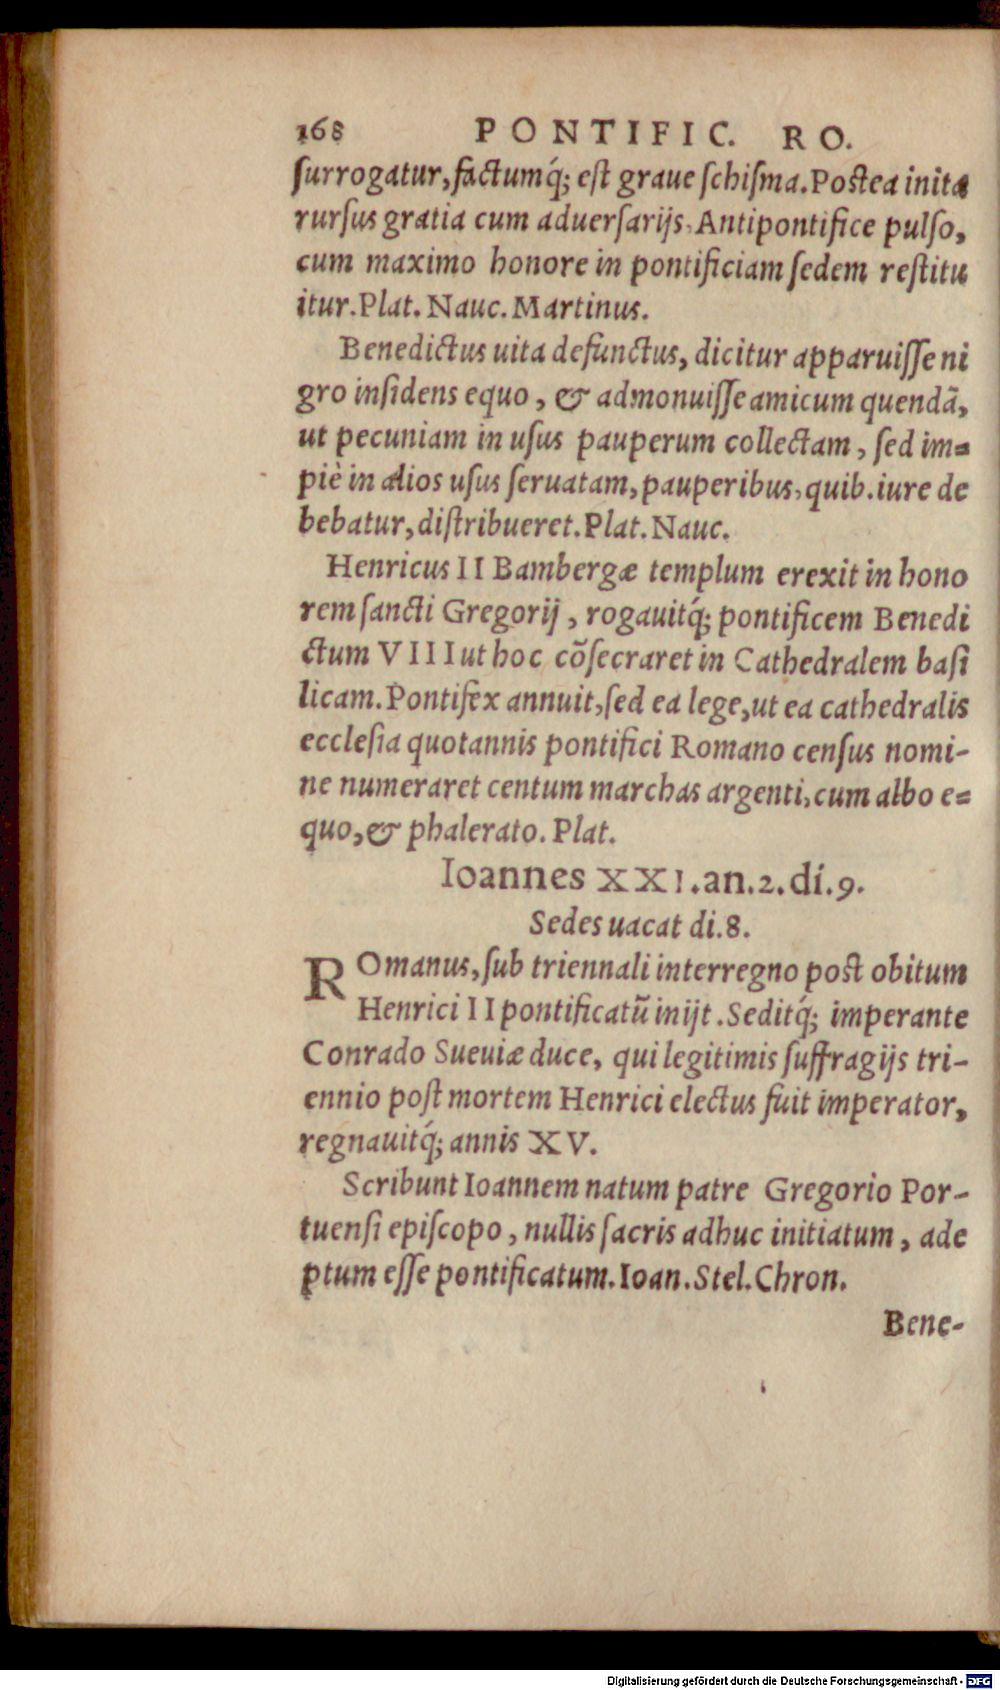 168 PONTIFIC. RO.
ſurrogatur, factumq́; eſt graue ſchiſma. Poſtea inita
rurſus gratia cum aduerſarijs, Antipontifice pulſo,
cum maximo honore in pontificiam ſedem reſtitu
itur. Plat. Nauc. Martinus.
Benedictus uita defunctus, dicitur apparuiſſe ni
gro inſidens equo, & admonuiſſe amicum quendã,
ut pecuniam in uſus pauperum collectam, ſed im=
piè in alios uſus ſeruatam, pauperibus, quib. iure de
bebatur, diſtribueret. Plat. Nauc.
Henricus II Bambergæ templum erexit in hono
rem ſancti Gregorij, rogauitq́; pontificem Benedi
ctum VIII ut hoc cõſecraret in Cathedralem baſi
licam. Pontifex annuit, ſed ea lege, ut ea cathedralis
eccleſia quotannis pontifici Romano cenſus nomi-
ne numeraret centum marchas argenti, cum albo e=
quo, & phalerato. Plat.
Ioannes XXI. an. 2. di. 9.
Sedes uacat di. 8.
ROmanus, ſub triennali interregno poſt obitum
Henrici II pontificatũ inijt. Seditq́; imperante
Conrado Sueuiæ duce, qui legitimis ſuffragijs tri-
ennio poſt mortem Henrici electus fuit imperator,
regnauitq́; annis XV.
Scribunt Ioannem natum patre Gregorio Por-
tuenſi epiſcopo, nullis ſacris adhuc initiatum, ade
ptum eſſe pontificatum. Ioan. Stel. Chron.
Bene-
Digitalisierung gefördert durch die Deutsche Forschungsgemeinschaft - DFG